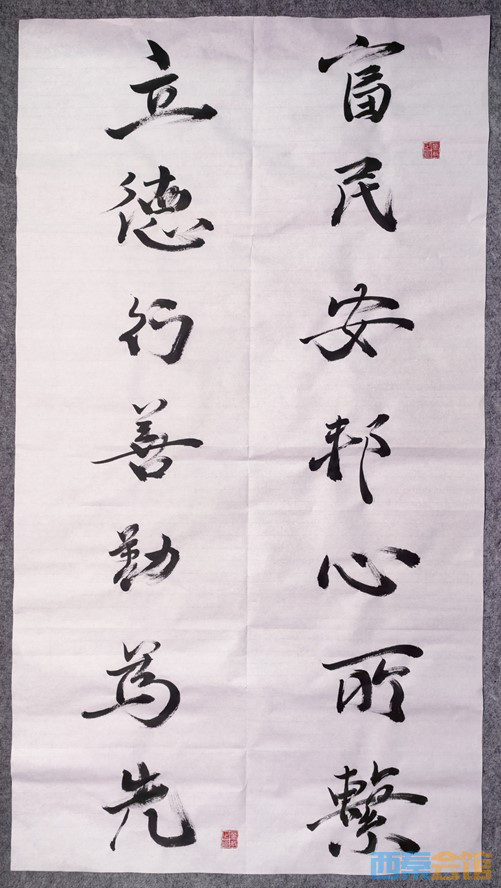 富民安邦心所繫
立德行善勤為先
西秦会馆